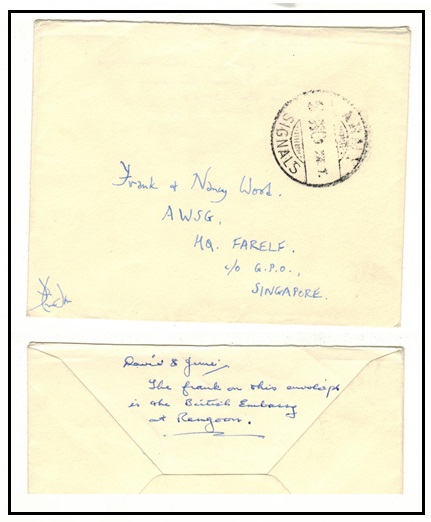 ARMY
SIGNALS
Frank & Nancy Wood.
AWSG,
HQ. FARELF.
c/o G.P.O.,
SINGAPORE.
David & June:
The frank on this envelope
is the British Embassy
at Rangoon.